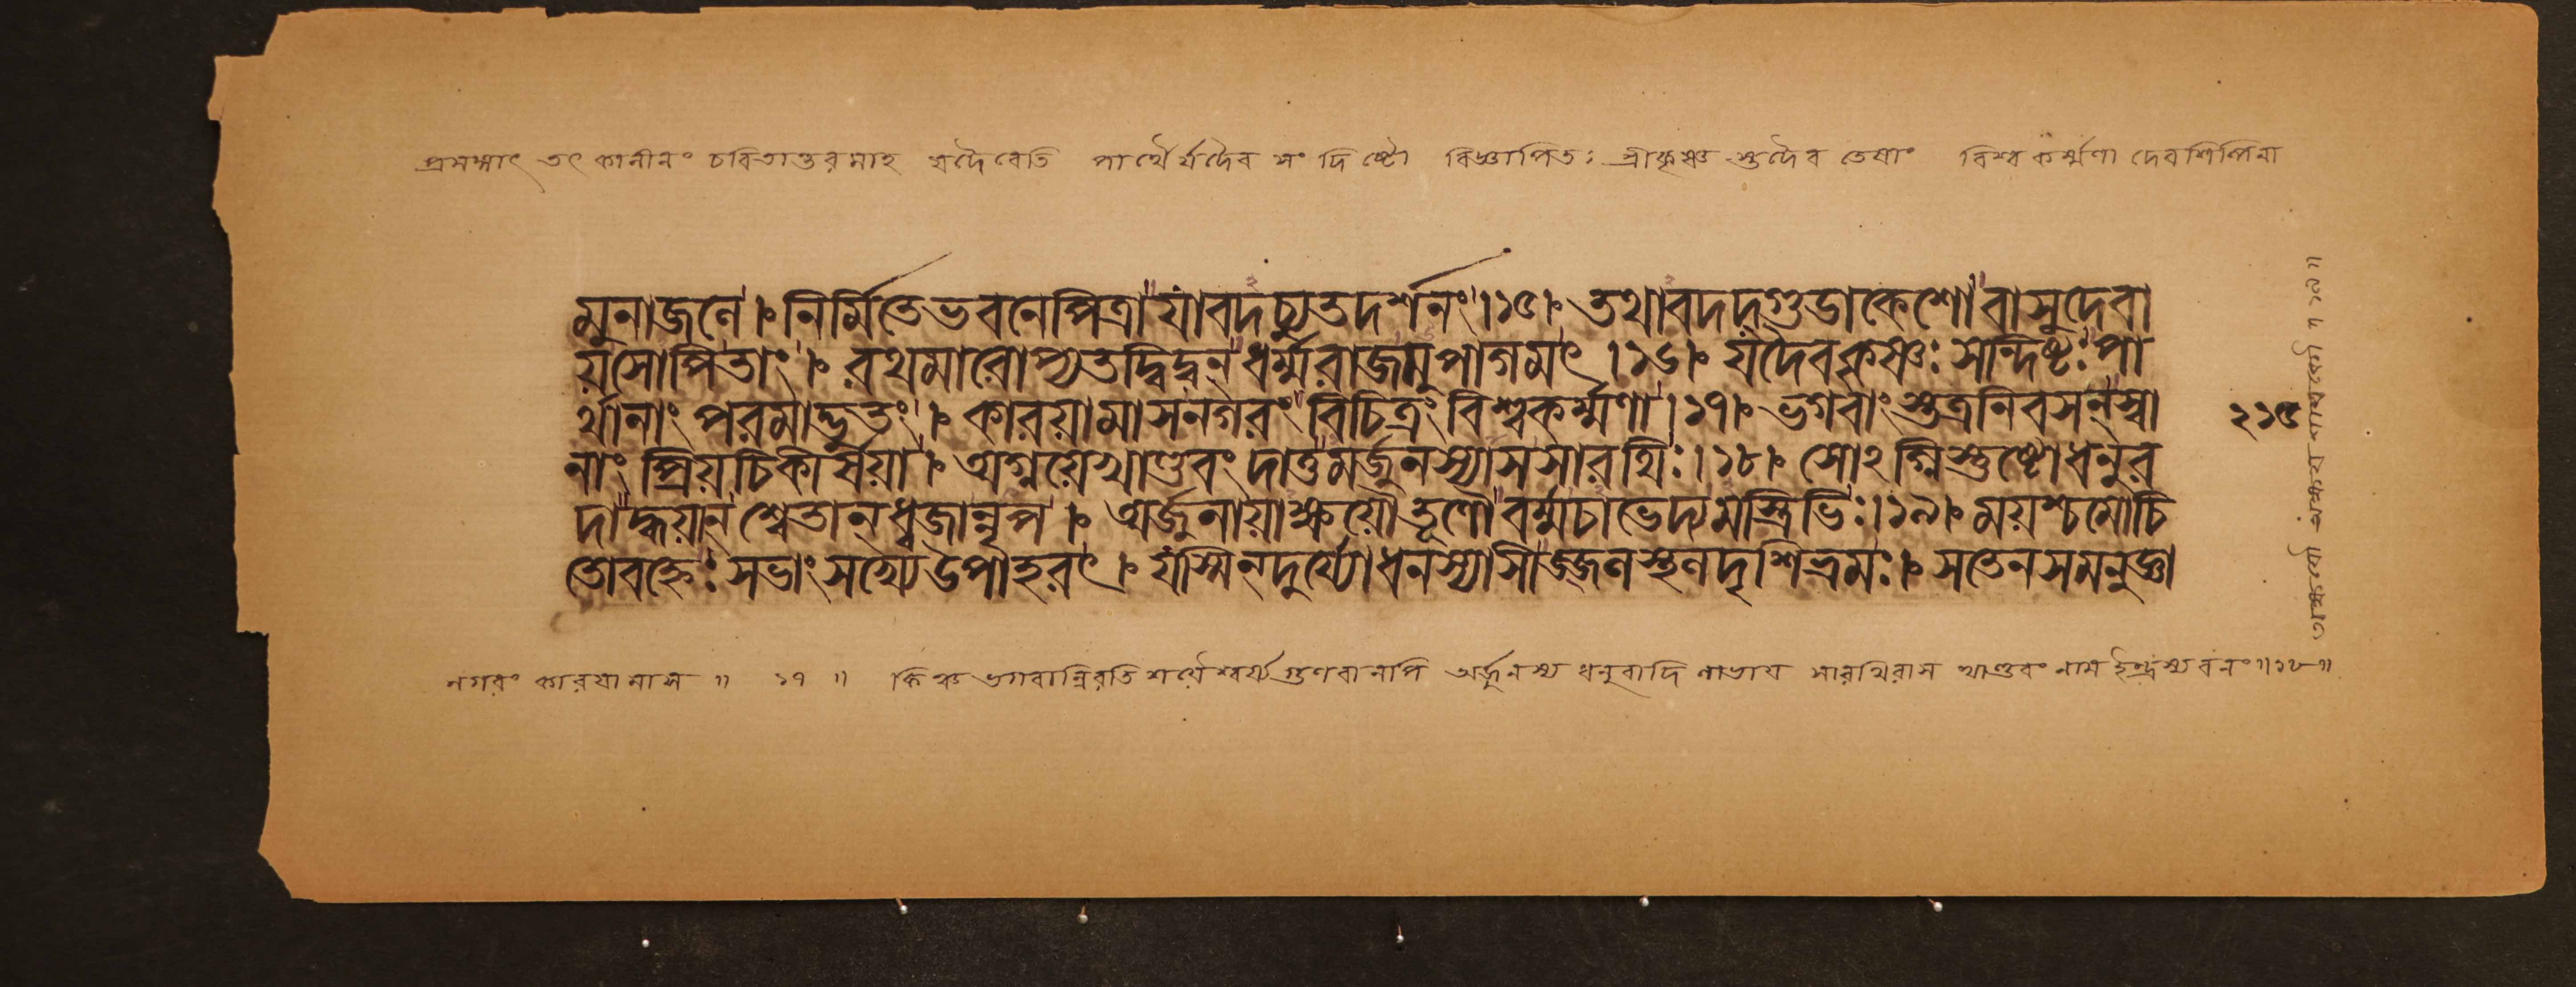 প্রসঙ্গাৎ তৎ কালীনং চরিতান্তরমাহ যদৈবেতি পার্থৈ র্যদৈব সং দি ষ্টো বিজ্ঞাপিতঃ শ্রীকৃষ্ণ স্তদৈব তেষাং বিশ্ব কর্ম্মণা দেবশিল্পিনা
মুনাজনে । নির্মিতেভবনেপিত্রাযাবদচ্যুতদর্শনং।১৫। তথাবদদ্গুডাকেশোবাসুদেবা
য়সোপিতাং । রথমারোপ্যতদ্বিদ্বন্ধর্ম্মরাজমুপাগমৎ ।১৬। যদৈবকৃষ্ণঃ সন্দিষ্টঃ পা
র্থানাং পরমাদ্ভুতং । কারয়ামাসনগরং বিচিত্রং বিশ্বকর্ম্মণা।১৭। ভগবাংস্তত্রনিবসন্স্বা
নাং প্রিয়চিকীর্ষয়া । অগ্নয়েখাণ্ডবং দাতুমর্জুনস্যাসসারথিঃ।১৮। সোঽগ্নিস্তুষ্টোধনুর
দাদ্ধয়ান্ শ্বেতান্রথংনৃপ । অর্জুনায়াক্ষয়ৌতূণৌবর্ম্মচাভেদ্যমস্ত্রিভিঃ।১৯। ময়শ্চমোচি
তোবহ্নেঃ সভাংসখ্যেউপাহরৎ । যস্মিন্দুর্য্যোধনস্যাসীজ্জলস্থলদৃশিভ্রমঃ। সতেনসমনুজ্ঞা
২১৫
নগরং কারয়ামাস ॥ ১৭ ॥ কিঞ্চ ভগবান্নিরতি শয়ৈশ্বর্য্যগুণবানপি অর্জুনস্য ধনুরাদি লাভায় সারথিরাস খাণ্ডবং নাম ইন্দ্রস্য বনং॥১৮॥